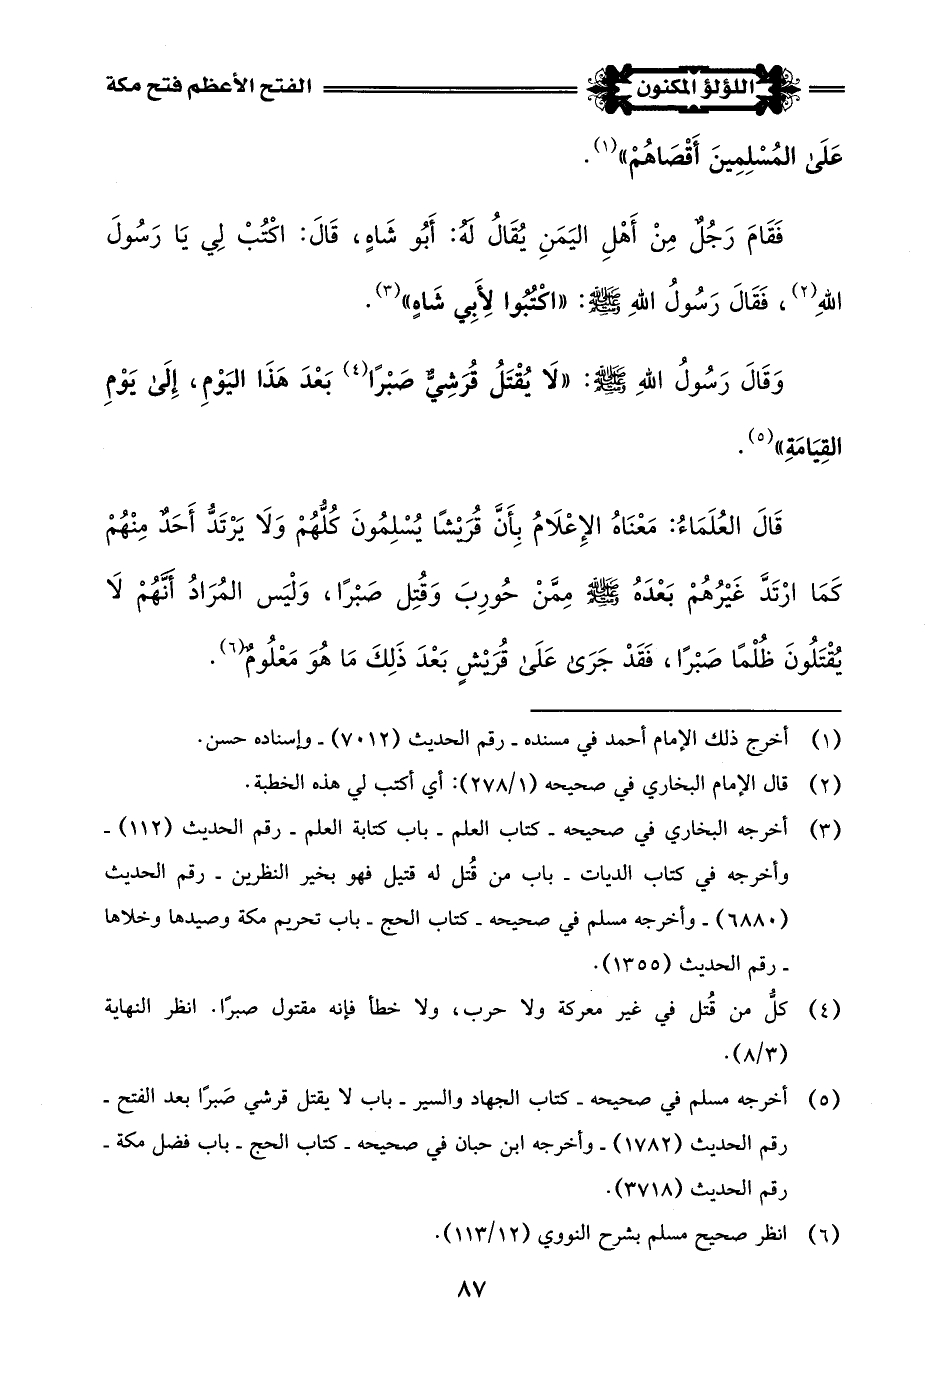 اللؤلؤ المكنون الفتح الأعظم فتح مكة
عَلَىٰ المُسْلِمِينَ أَقْصَاهُمْ»(١).
فَقَامَ رَجُلٌ مِنْ أَهْلِ اليَمَنِ يُقَالُ لَهُ: أَبُو شَاهٍ، قَالَ: اكْتُبْ لِي يَا رَسُولَ
اللهِ(٢)، فَقَالَ رَسُولُ اللهِ ﷺ: «اكْتُبُوا لِأَبِي شَاهٍ»(٣).
وَقَالَ رَسُولُ اللهِ ﷺ: «لَا يُقْتَلُ قُرَشِيٌّ صَبْرًا(٤) بَعْدَ هَذَا اليَوْمِ، إِلَىٰ يَوْمِ
القِيَامَةِ»(٥).
قَالَ العُلَمَاءُ: مَعْنَاهُ الإِعْلَامُ بِأَنَّ قُرَيْشًا يُسْلِمُونَ كُلُّهُمْ وَلَا يَرْتَدُّ أَحَدٌ مِنْهُمْ
كَمَا ارْتَدَّ غَيْرُهُمْ بَعْدَهُ ﷺ مِمَّنْ حُورِبَ وَقُتِل صَبْرًا، وَلَيْس المُرَادُ أَنَّهُمْ لَا
يُقْتَلُونَ ظُلْمًا صَبْرًا، فَقَدْ جَرَىٰ عَلَىٰ قُرَيْشٍ بَعْدَ ذَلِكَ مَا هُوَ مَعْلُومٌ(٦).
(١) أخرج ذلك الإمام أحمد في مسنده ـ رقم الحديث (٧٠١٢) ـ وإسناده حسن.
(٢) قال الإمام البخاري في صحيحه (٢٧٨/١): أي أكتب لي هذه الخطبة.
(٣) أخرجه البخاري في صحيحه ـ كتاب العلم ـ باب كتابة العلم ـ رقم الحديث (١١٢) ـ
وأخرجه في كتاب الديات ـ باب من قُتل له قتيل فهو بخير النظرين ـ رقم الحديث
(٦٨٨٠) ـ وأخرجه مسلم في صحيحه ـ كتاب الحج ـ باب تحريم مكة وصيدها وخلاها
ـ رقم الحديث (١٣٥٥).
(٤) كلُّ من قُتل في غير معركة ولا حرب، ولا خطأ فإنه مقتول صبرًا. انظر النهاية
(٨/٣).
(٥) أخرجه مسلم في صحيحه ـ كتاب الجهاد والسير ـ باب لا يقتل قرشي صَبرًا بعد الفتح ـ
رقم الحديث (١٧٨٢) ـ وأخرجه ابن حبان في صحيحه ـ كتاب الحج ـ باب فضل مكة ـ
رقم الحديث (٣٧١٨).
(٦) انظر صحيح مسلم بشرح النووي (١١٣/١٢).
٨٧